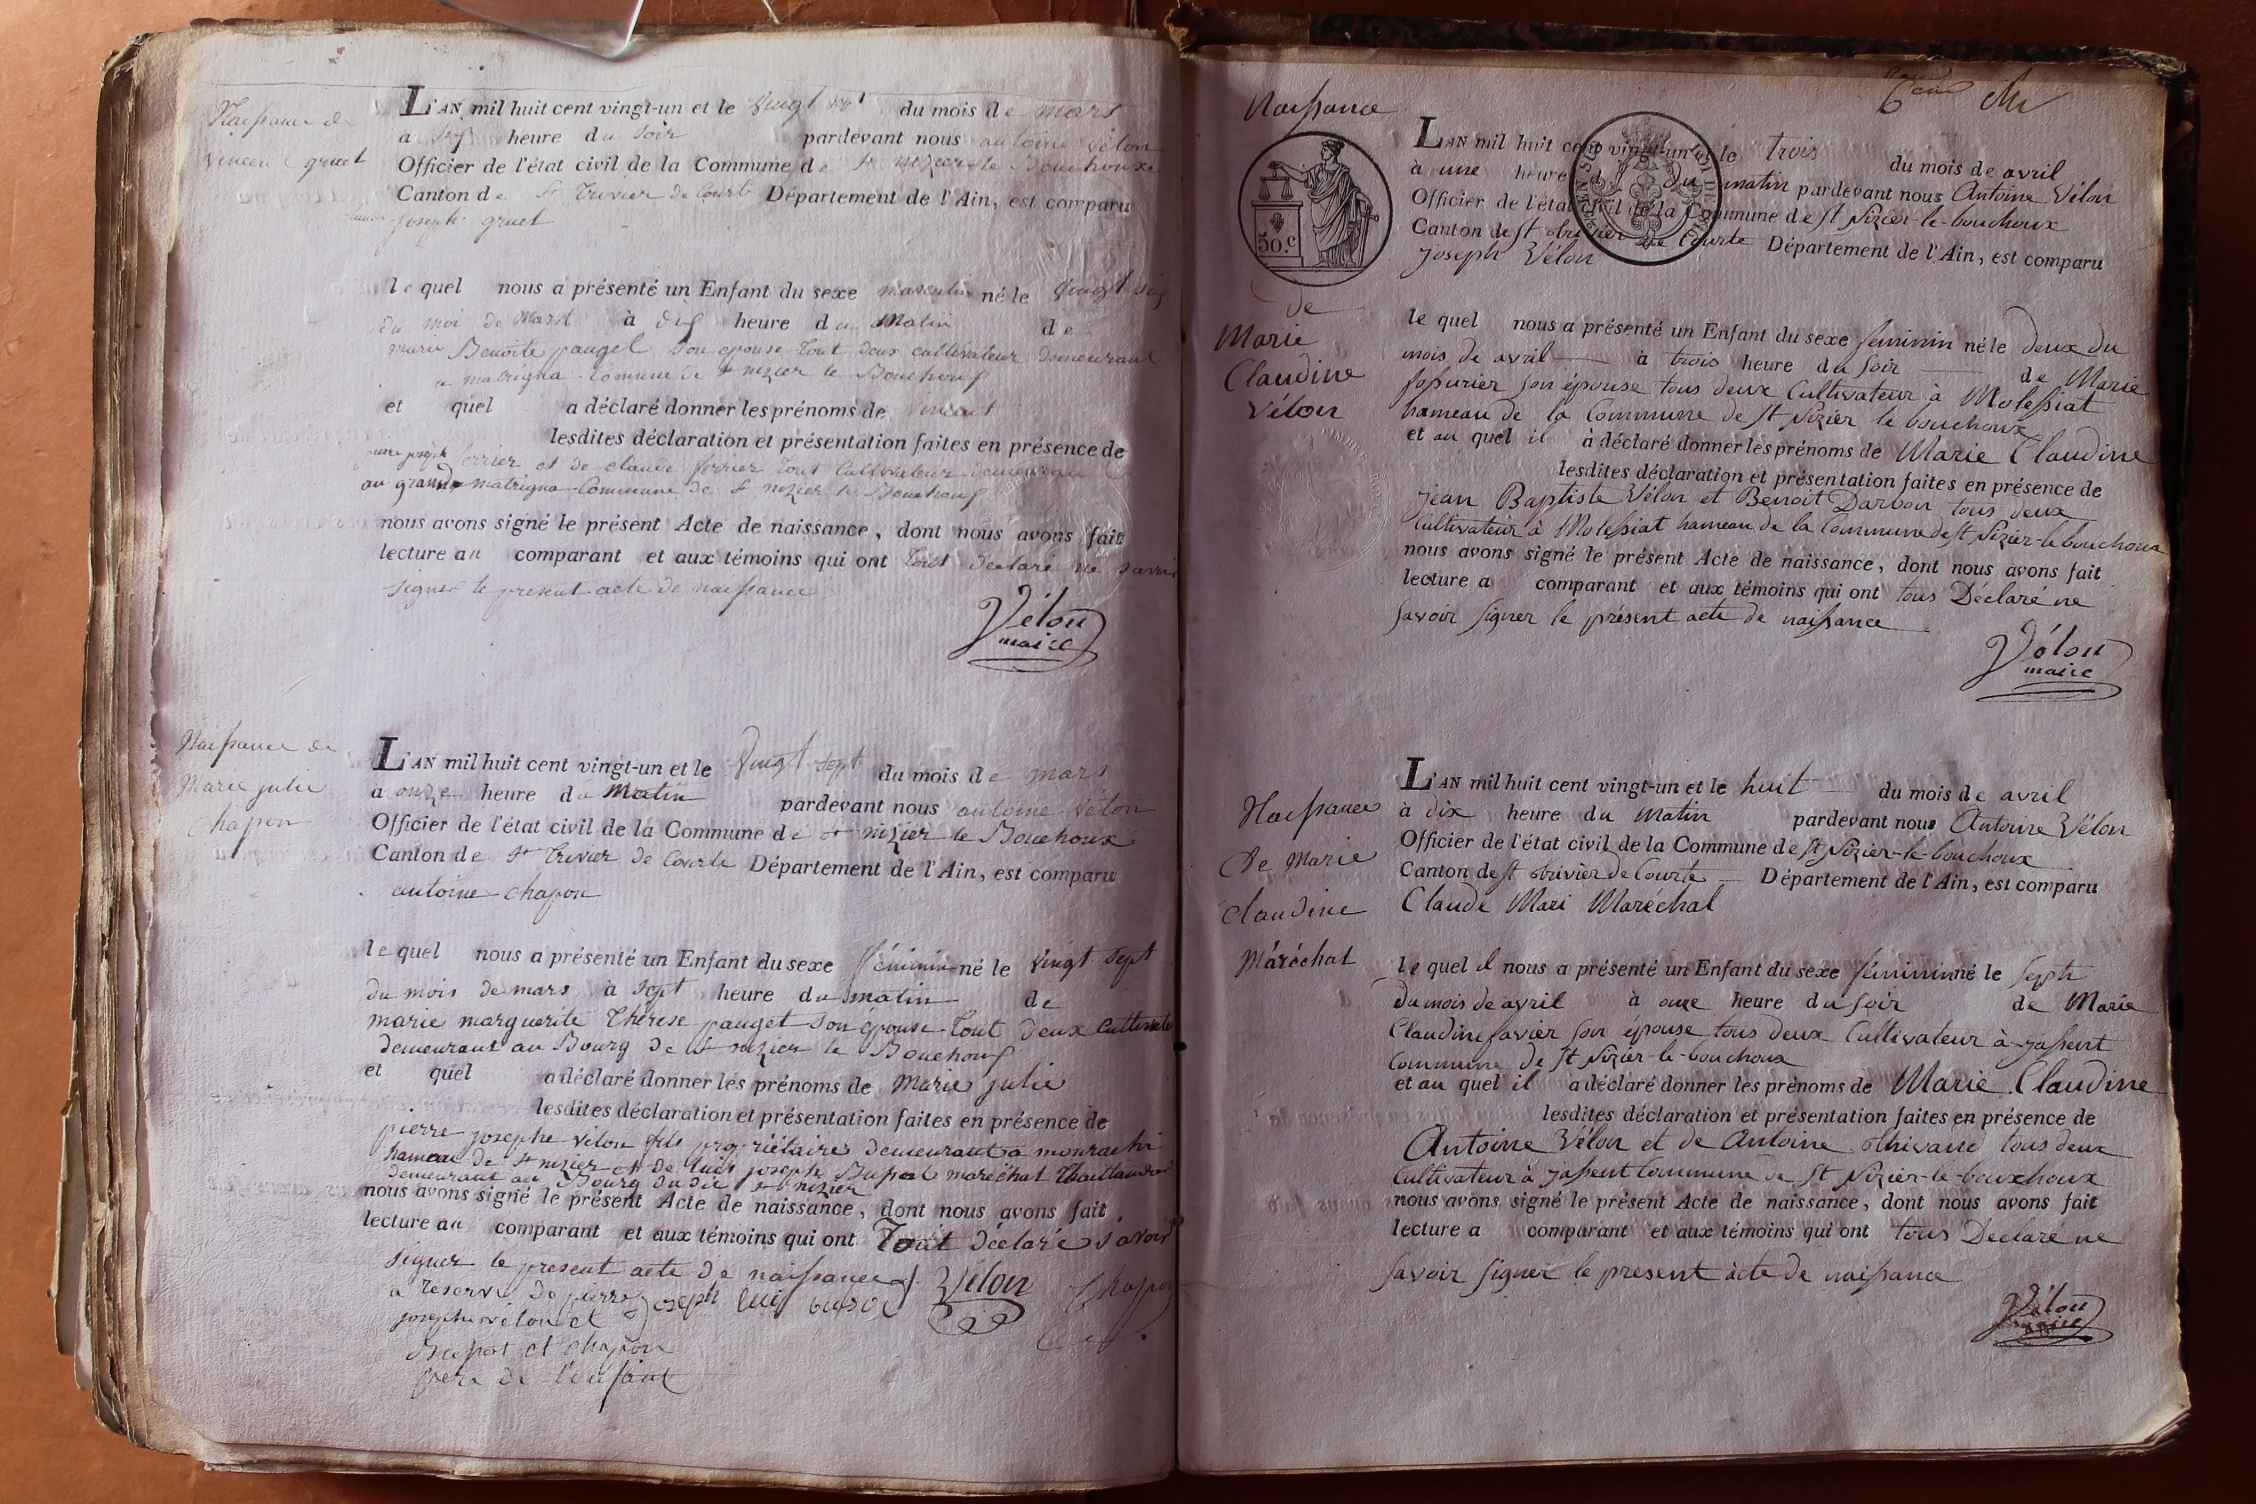 Naissance de
Vincent gruet
L'AN mil huit cent vingt-un et le vingt du mois de mars
a heure du soir pardevant nous antoine vélon
Officier de l'état civil de la Commune de st nizier le Bouchoux
Canton de st Trivier de Courte Département de l'Ain, est comparu
joseph gruet
le quel nous a présenté un Enfant du sexe masculin né le vingt six
du moi de Mars à heure du Matin de
marie Benoite pauget son epouse tout deux cultivateur demeurant
a matrigna Commune de st nizier le Bouchoux
et quel a déclaré donner les prénoms de vincent
lesdites déclaration et présentation faites en présence de
joseph ferrier et de claude ferrier tout Cultivateur demeurant
au grand matrigna Commune de st nizier le Bouchoux
nous avons signé le présent Acte de naissance, dont nous avons fait
lecture au comparant et aux témoins qui ont tout déclaré ne savoir
signer le present acte de naissance
Vélon
maire
Naissance de
Marie julie
Chapon
L'AN mil huit cent vingt-un et le vingt sept du mois de mars
a onze heure du Matin pardevant nous antoine vélon
Officier de l'état civil de la Commune de st nizier le Bouchoux
Canton de st Trivier de Courte Département de l'Ain, est comparu
antoine chapon
le quel nous a présenté un Enfant du sexe féminin né le vingt sept
du mois de mars à sept heure du matin de
marie marguerite Thérese pauget son épouse tout deux Cultivate
demeurant au Bourg de st nizier le Bouchoux
et quel a déclaré donner les prénoms de Marie julie
lesdites déclaration et présentation faites en présence de
pierre josephe vélon fils propriétaire demeurant a
hameau de st nizier et de joseph maréchal
demeurant au Bourg dudit st nizier
nous avons signé le présent Acte de naissance, dont nous avons fait
lecture au comparant et aux témoins qui ont Tout déclaré savoir
signer le present acte de naissance
a reserve de pierre joseph Vélon Chapon
josephe vélon et
et chapon
pere de l'enfant
Naissance
50.c
de
Marie
Claudine
Vélon
L'AN mil huit cent vingt-un et le trois du mois de avril
à une heure du matin pardevant nous Antoine Vélon
Officier de l'état civil de la Commune de st Nizier-le-bouchoux
Canton de st trivier de Courte Département de l'Ain, est comparu
joseph Vélon
le quel nous a présenté un Enfant du sexe féminin né le deux du
mois de avril à trois heure du soir de Marie
son épouse tous deux Cultivateur à Molessiat
hameau de la Commune de st Nizier le bouchoux
et au quel il à déclaré donner les prénoms de Marie Claudine
lesdites déclaration et présentation faites en présence de
jean Baptiste Vélon et Benoit Darbon tous deux
Cultivateur à Molessiat hameau de la Commune de st Nizier-le bouchoux
nous avons signé le présent Acte de naissance, dont nous avons fait
lecture a comparant et aux témoins qui ont tous Déclaré ne
savoir signer le présent acte de naissance
Vélon
maire
Naissance
de Marie
Claudine
Maréchal
L'AN mil huit cent vingt-un et le huit du mois de avril
à dix heure du matin pardevant nous Antoine Vélon
Officier de l'état civil de la Commune de st Nizier-le-bouchoux
Canton de st trivier de Courte Département de l'Ain, est comparu
Claude Mari Maréchal
le quel il nous a présenté un Enfant du sexe féminin né le sept
du mois de avril à onze heure du soir de Marie
Claudine favier son épouse tous deux Cultivateur à
Commune de st Nizier-le-bouchoux
et au quel il a déclaré donner les prénoms de Marie Claudine
lesdites déclaration et présentation faites en présence de
Antoine Vélon et de Antoine tous deux
Cultivateur à Commune de st Nizier-le-bouxhoux
nous avons signé le présent Acte de naissance, dont nous avons fait
lecture a comparant et aux témoins qui ont tous Déclaré ne
savoir signer le present acte de naissance
Vélon
maire